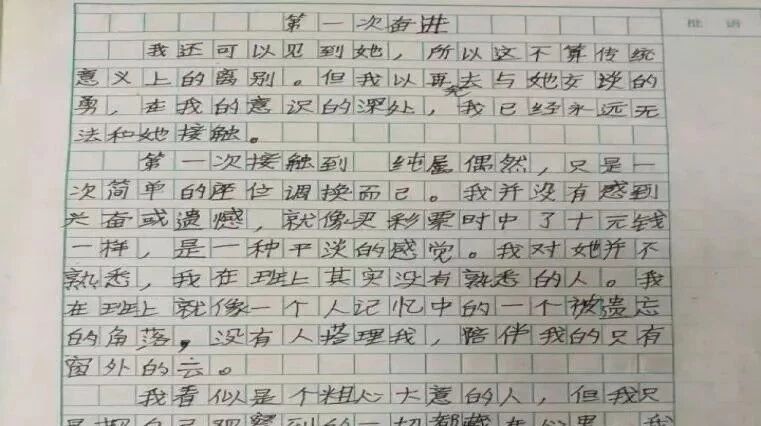 批语
第一次奋进
我还可以见到她，所以这不算传统
意义上的离别。但我以再去与她交谈的
勇，在我的意识的深处，我已经永远无
法和她接触。
第一次接触到 纯属偶然，只是一
次简单的座位调换而已。我并没有感到
兴奋或遗憾，就像买彩票时中了十元钱
一样，是一种平淡的感觉。我对她并不
熟悉，我在班上其实没有熟悉的人。我
在班上就像一个人记忆中的一个被遗忘
的角落，没有人搭理我，陪伴我的只有
窗外的云。
我看似是个粗心大意的人，但我只
是把自己观察到的一切都藏在心里，我